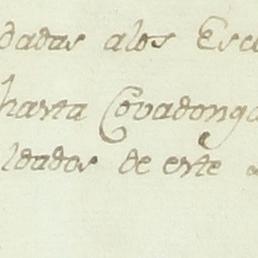 dadas alos Esc
hasta Covadonga
ldados de este